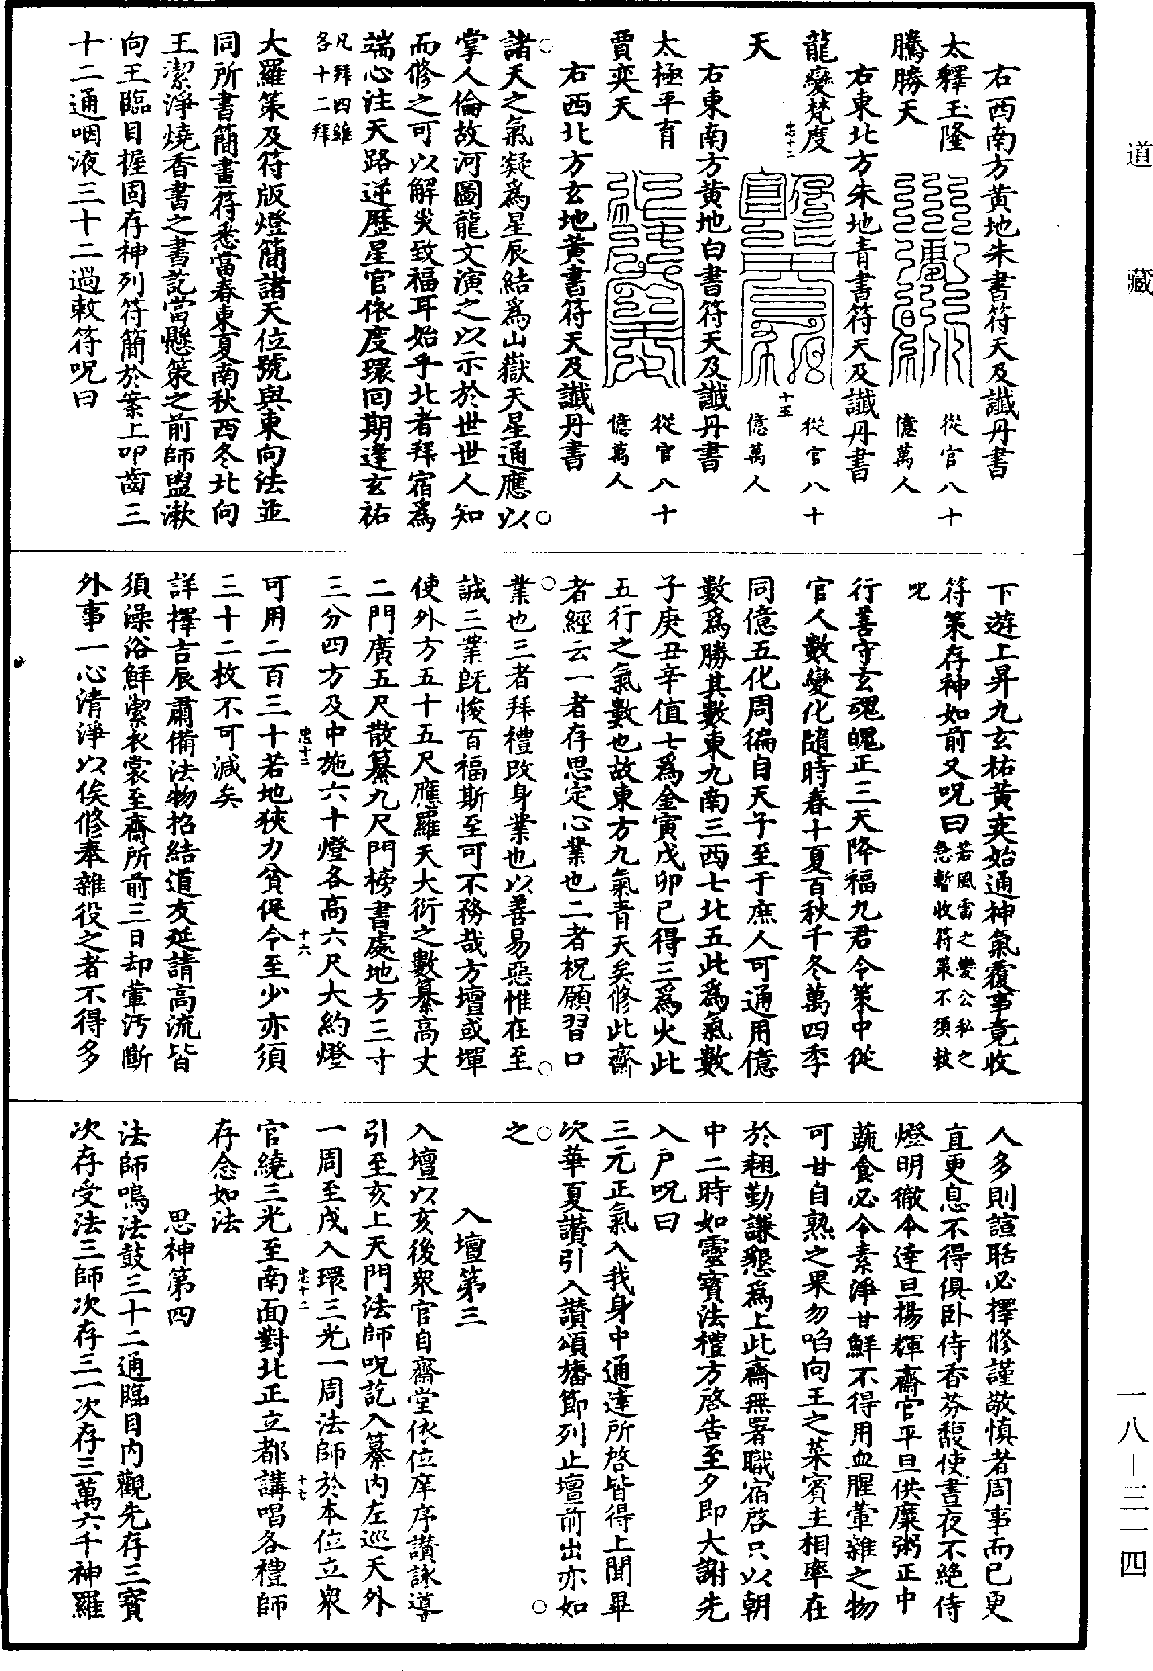 道藏
右西南方黃地朱書符天及讖丹書
太釋玉隆
從官八十
騰勝天
億萬人
右東北方朱地青書符天及讖丹書
龍變梵度
從官八十
忠十二
十五
天
億萬人
右東南方黃地白書符天及讖丹書
太極平育
從官八十
賈奕天
億萬人
右西北方玄地黃書符天及讖丹書
諸天之氣凝爲星辰結爲山嶽天星通應以
掌人倫故河圖龍文演之以示於世世人知
而修之可以解災致福耳始乎北者拜宿爲
端心注天路逆歷星官依度環回期達玄祐
凡拜四維
各十二拜
大羅策及符版燈簡諸天位號與東向法並
同所書簡書符悉當春東夏南秋西冬北向
王潔淨燒香書之書訖當懸策之前師盥漱
向王臨目握固存神列符簡於案上叩齒三
十二通咽液三十二過敕符呪曰
下遊上昇九玄祐黃奕始通神氣覆事竟收
符策存神如前又呪曰
若風雷之變公私之
急暫收符策不須敕
呪
行善守玄魂魄正三天降福九君令策中從
官人數變化隨時春十夏百秋千冬萬四季
同億五化周徧自天子至于庶人可通用億
數爲勝其數東九南三西七北五此爲氣數
子庚丑辛值七爲金寅戊卯己得三爲火此
五行之氣數也故東方九氣青天矣修此齋
者經云一者存思定心業也二者祝願習口
業也三者拜禮改身業也以善易惡惟在至
誠三業既悛百福斯至可不務哉方壇或墠
使外方五十五尺應羅天大衍之數纂高丈
二門廣五尺散纂九尺門榜書處地方三寸
三分四方及中施六十燈各高六尺大約燈
忠十二
十六
可用二百三十若地狹力貧促令至少亦須
三十二枚不可減矣
詳擇吉辰肅備法物招結道友延請高流皆
須澡浴鮮潔衣裳至齋所前三日却葷汚斷
外事一心清淨以俟修奉雜役之者不得多
人多則諠聒必擇修謹敬慎者周事而已更
直更息不得俱卧侍香芬馥使晝夜不絶侍
燈明徹令達旦揚輝齋官平旦供糜粥正中
蔬食必令素淨甘鮮不得用血腥葷雜之物
可甘自熟之果勿啗向王之菜賓主相率在
於翹勤謙懇爲上此齋無署職宿啓只以朝
中二時如靈寶法禮方啓告至夕即大謝先
入戶呪曰
三元正氣入我身中通達所啓皆得上聞畢
次華夏讚引入讚頌旛節列止壇前出亦如
之
入壇第三
入壇以亥後衆官自齋堂依位庠序讚詠導
引至亥上天門法師呪訖入纂內左巡天外
一周至戌入環三光一周法師於本位立衆
忠十二
十七
官繞三光至南面對北正立都講唱各禮師
存念如法
思神第四
法師鳴法鼓三十二通臨目內觀先存三寶
次存受法三師次存三一次存三萬六千神羅
一八—三一四